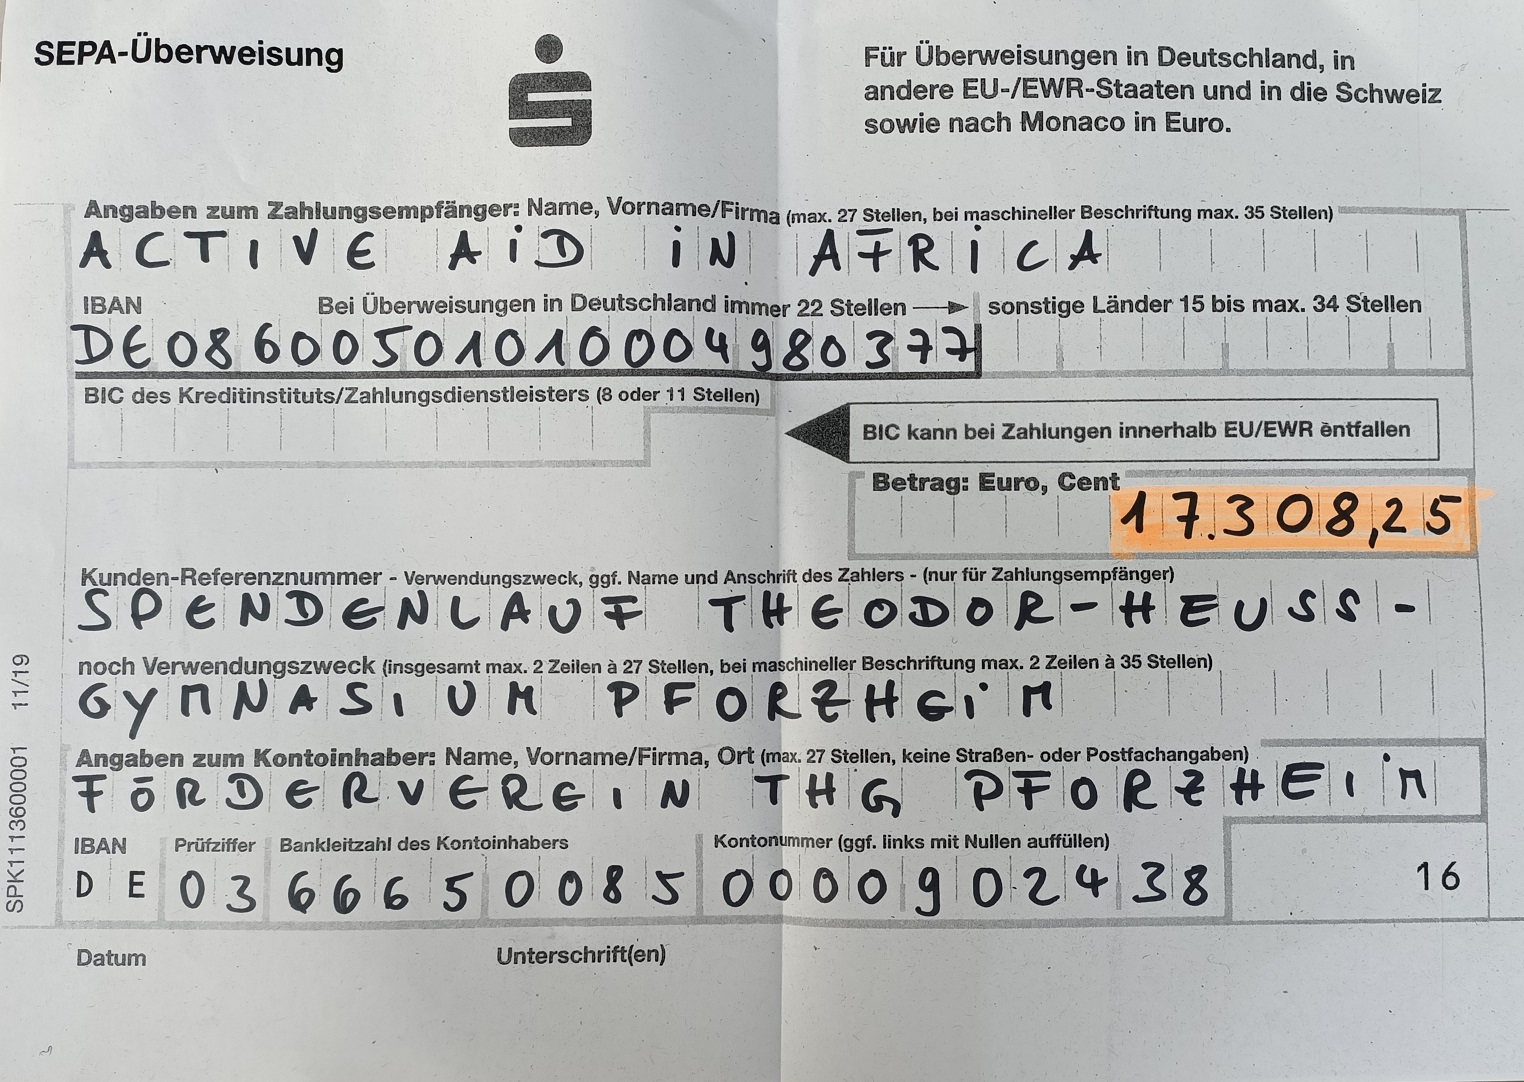 SEPA-Überweisung
Für Überweisungen in Deutschland, in
andere EU-/EWR-Staaten und in die Schweiz
sowie nach Monaco in Euro.
Angaben zum Zahlungsempfänger: Name, Vorname/Firma (max. 27 Stellen, bei maschineller Beschriftung max. 35 Stellen)
ACTIVE AiD iN AFRiCA
IBAN Bei Überweisungen in Deutschland immer 22 Stellen sonstige Länder 15 bis max. 34 Stellen
DE08600501010004980377
BIC des Kreditinstituts/Zahlungsdienstleisters (8 oder 11 Stellen)
BIC kann bei Zahlungen innerhalb EU/EWR entfallen
Betrag: Euro, Cent
17.308,25
Kunden-Referenznummer - Verwendungszweck, ggf. Name und Anschrift des Zahlers - (nur für Zahlungsempfänger)
SPENDENLAUF THEODOR-HEUSS-
noch Verwendungszweck (insgesamt max. 2 Zeilen à 27 Stellen, bei maschineller Beschriftung max. 2 Zeilen à 35 Stellen)
GYMNASIUM PFORZHEiM
Angaben zum Kontoinhaber: Name, Vorname/Firma, Ort (max. 27 Stellen, keine Straßen- oder Postfachangaben)
FÖRDERVEREIN THG PFORZHEIiM
IBAN Prüfziffer Bankleitzahl des Kontoinhabers Kontonummer (ggf. links mit Nullen auffüllen)
DE 03 66650085 0000902438 16
Datum Unterschrift(en)
SPK1113600001 11/19